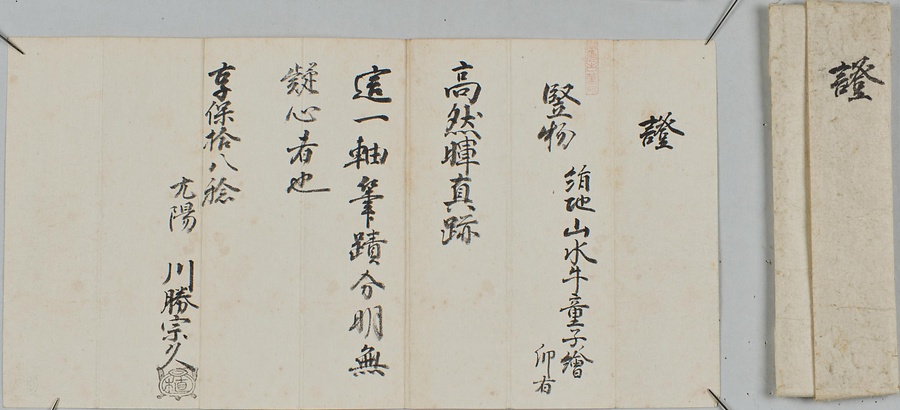 證
竪物
絹地山水牛童子繪
印有
高然暉真跡
這一軸筆蹟分明無
疑心者也
享保拾八稔
亢陽 川勝宗久
證